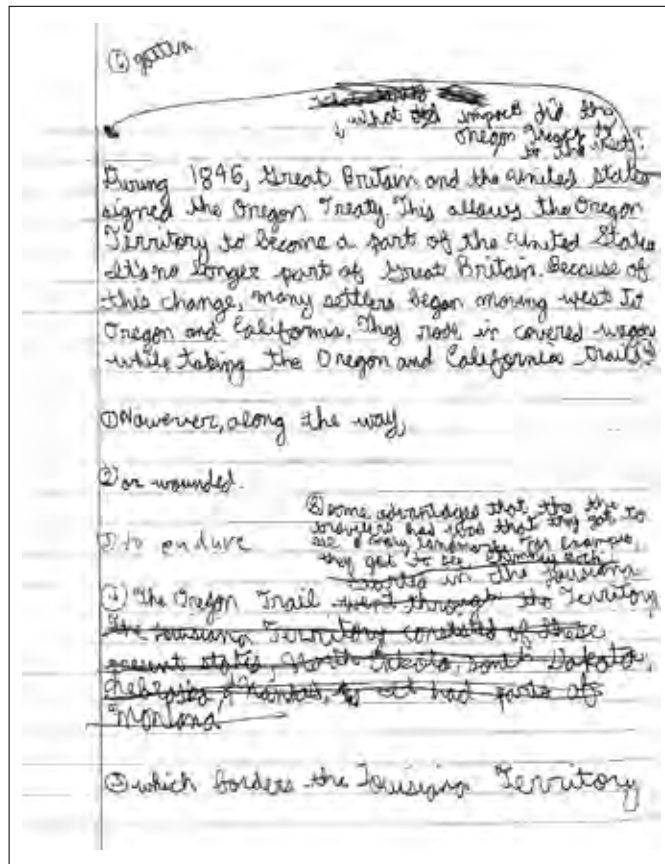 ⑥ gotten
What did impact did the
Oregon Treaty
to the West?
During 1846, Great Britain and the United States
signed the Oregon Treaty. This allows the Oregon
Territory to become a part of the United States
It's no longer part of Great Britain. Because of
this change, many settlers began moving west to
Oregon and California. They rode in covered wagon
while taking the Oregon and California trails
① However, along the way,
② or wounded.
③ to endure
⑧ some advantages that the the
travelers had was that they got to
see many landmarks. For example,
they got to see Chimney Rock
started in the Louisiana
④ The Oregon Trail went through the Territory
The Louisiana Territory consisted of these
present states, North Dakota, South Dakota,
Nebraska, Kansas, it had parts of
Montana,
⑤ which borders the Louisiana Territory